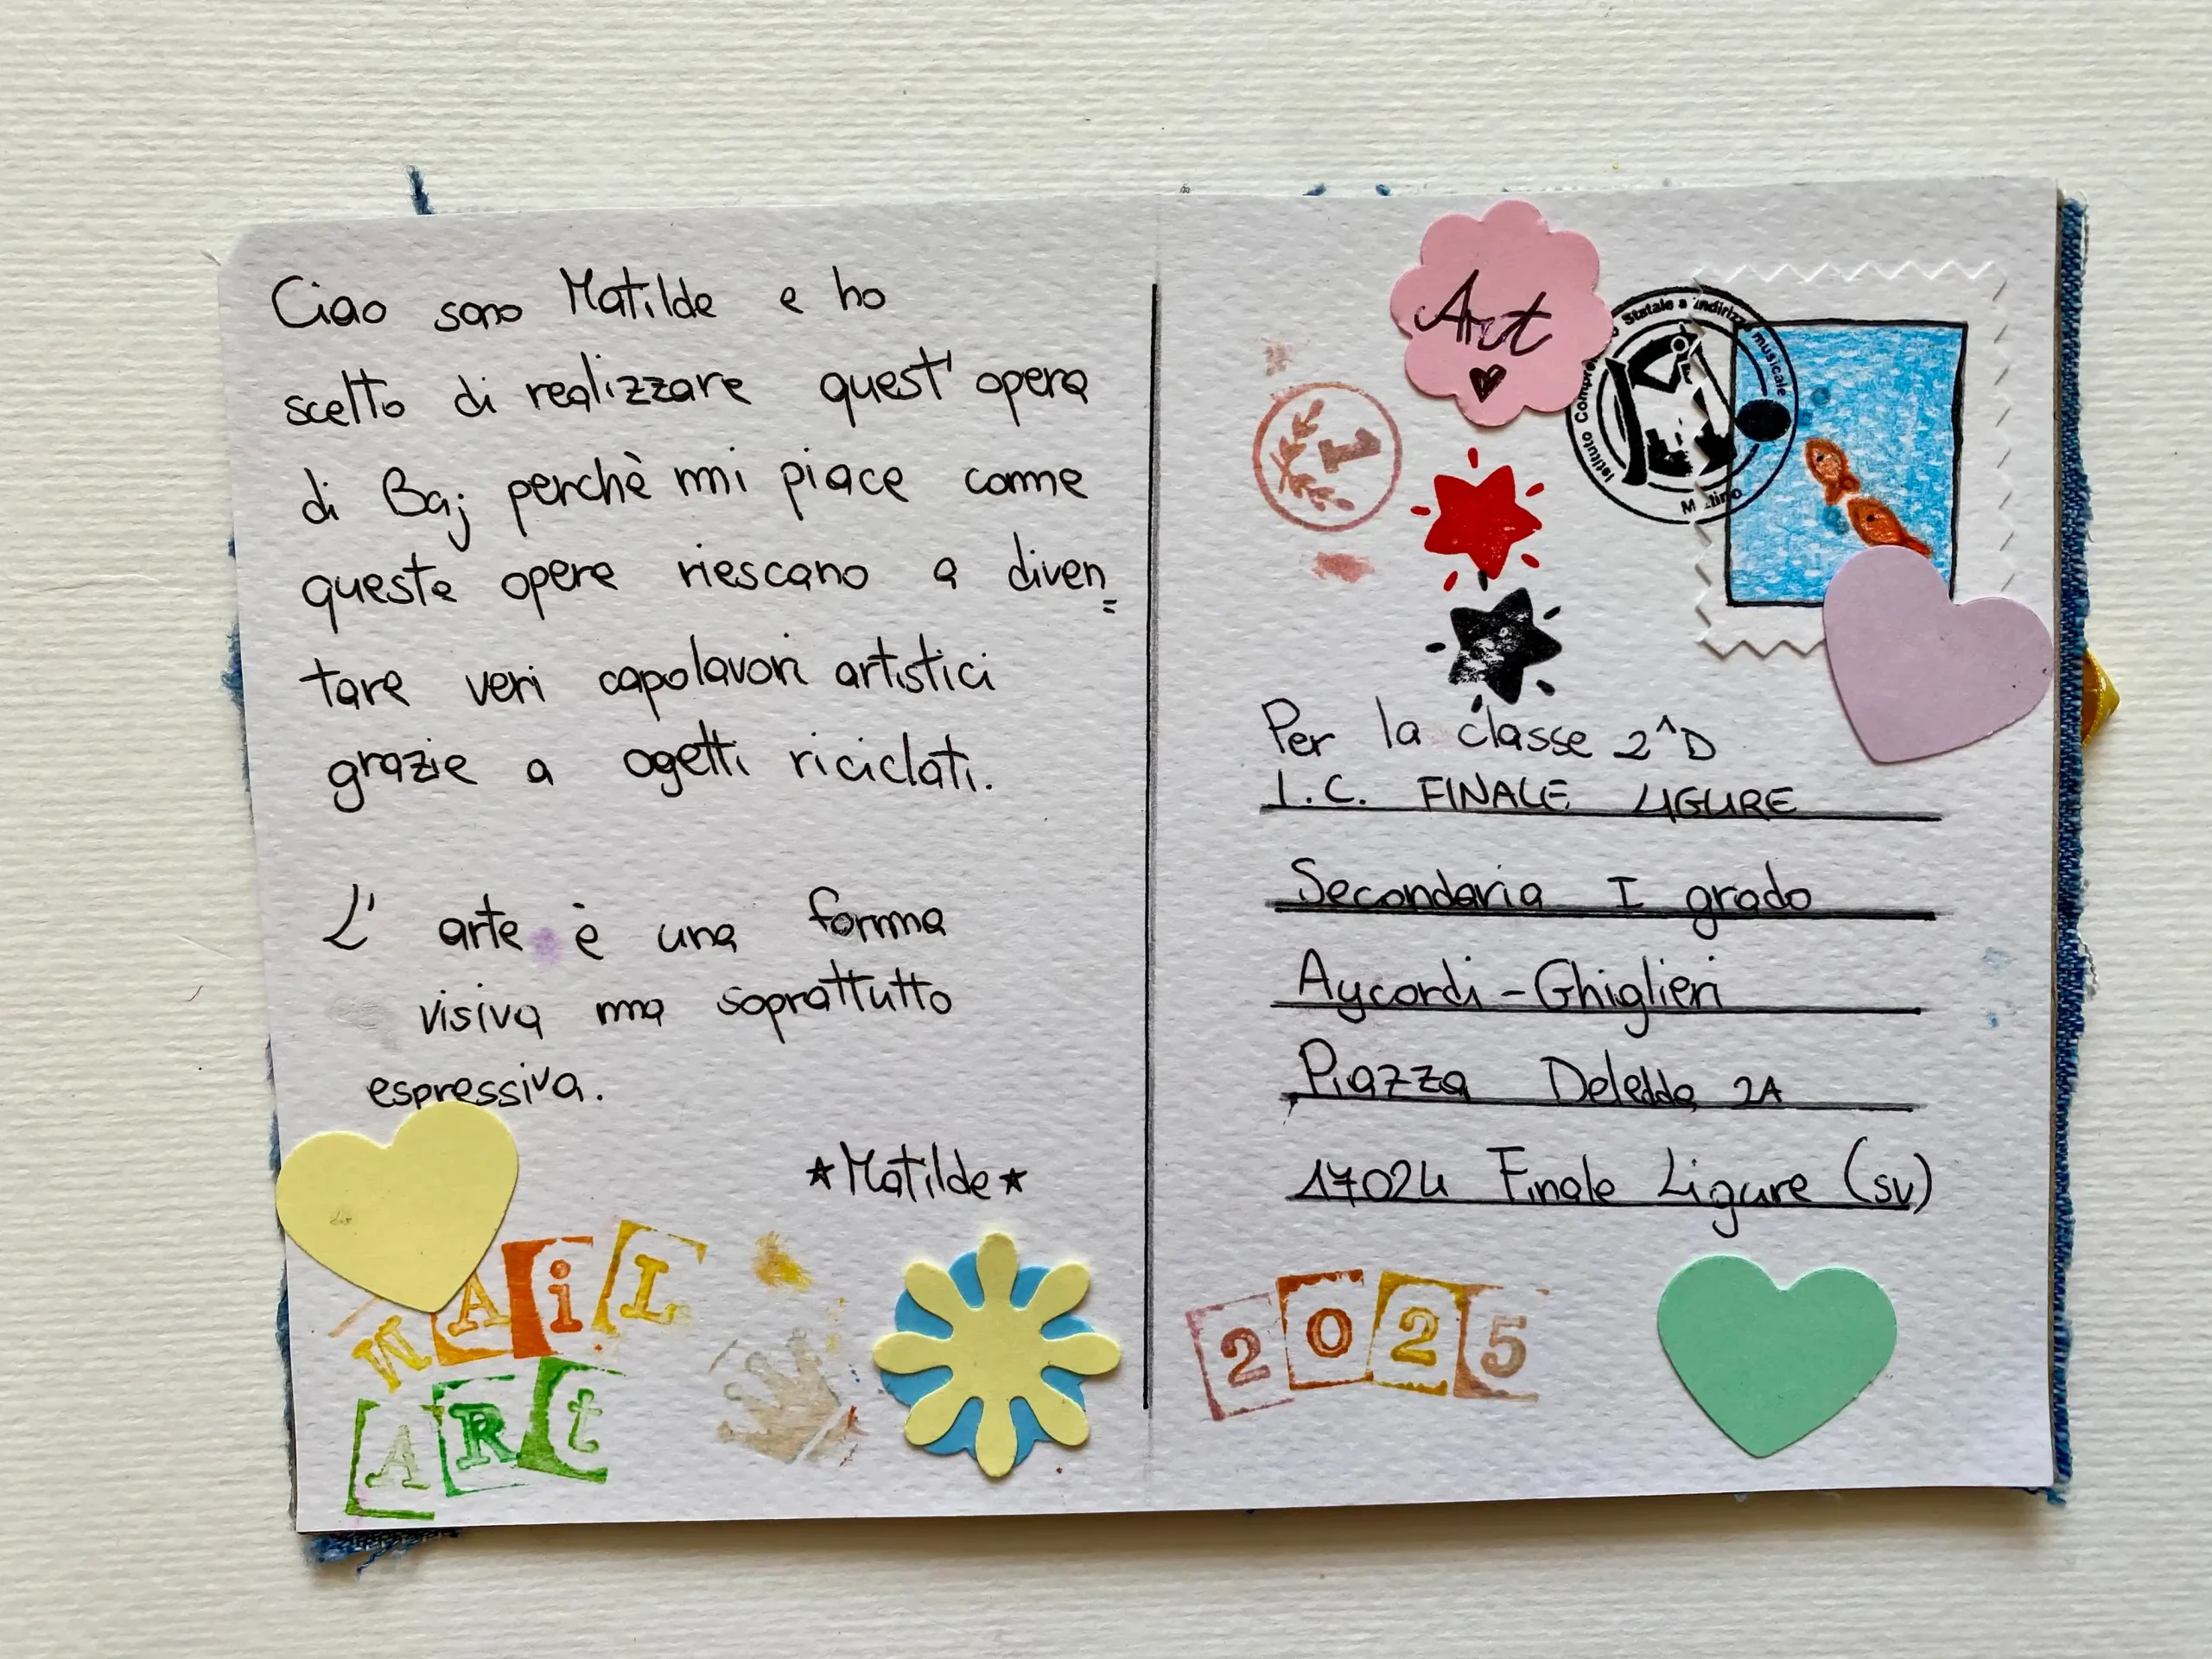 Ciao sono Matilde e ho
scelto di realizzare quest' opera
di Baj perchè mi piace come
queste opere riescano a diven=
tare veri capolavori artistici
grazie a ogetti riciclati.
L' arte è una forma
visiva ma soprattutto
espressiva.
★Matilde★
MAiL
ARt
Art
Statale a Indirizzo musicale
Istituto Compre
1
Per la classe 2^D
I.C. FINALE LIGURE
Secondaria I grado
Aycardi-Ghiglieri
Piazza Deledda 2A
17024 Finale Ligure (SV)
2025